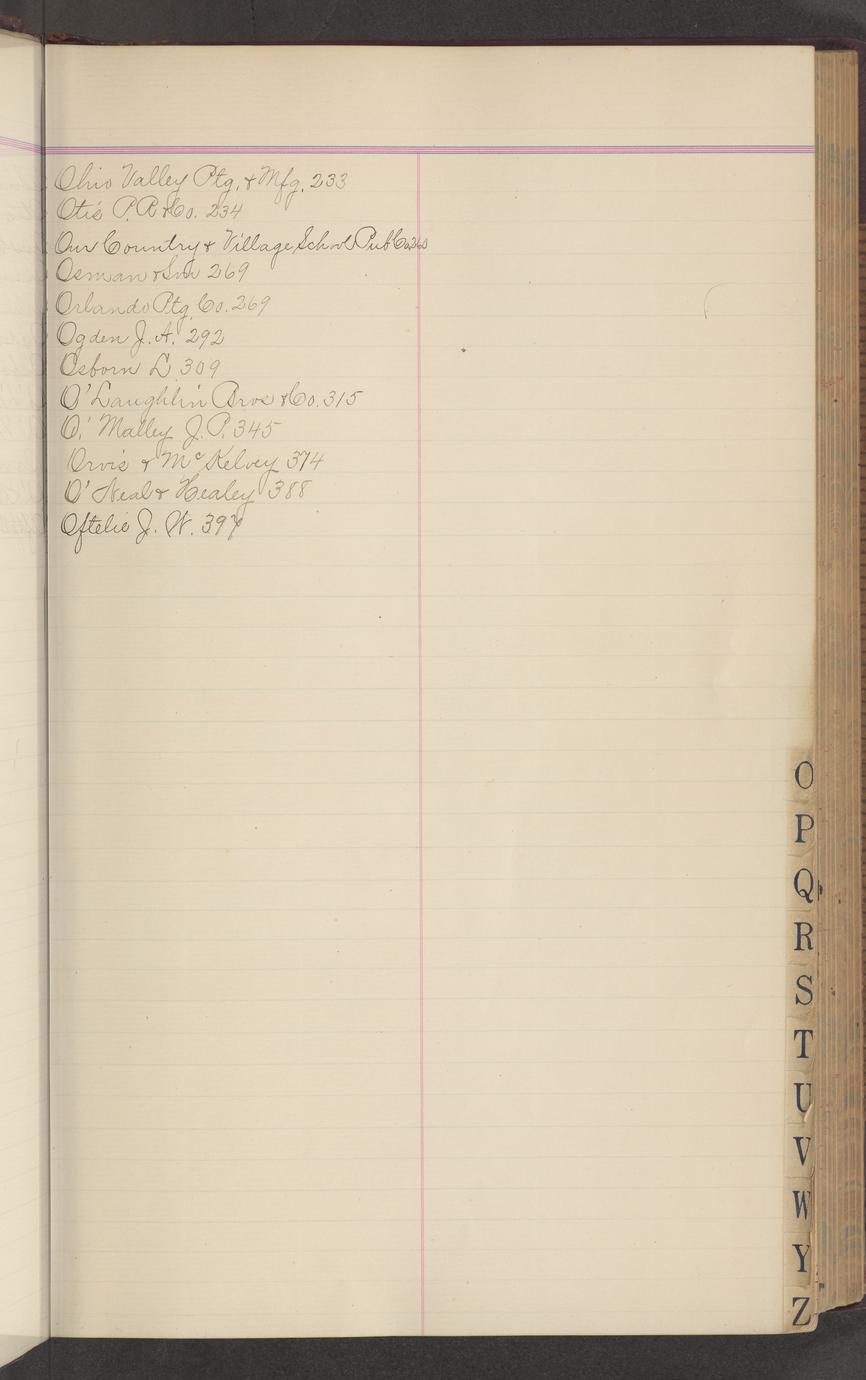 Ohio Valley Ptg. & Mfg. 233
Otis P. R & Co. 234
Our Country & Village School Pub Co.
Osman & Son 269
Orlando Ptg. Co. 269
Ogden J. A. 292
Osborn L 309
O'Laughlin Bros & Co. 315
O'Malley J. P. 345
Orvis & McKelvey 374
O'Neal & Healey 388
Oftelie J. W. 397
O
P
Q
R
S
T
U
V
W
Y
Z